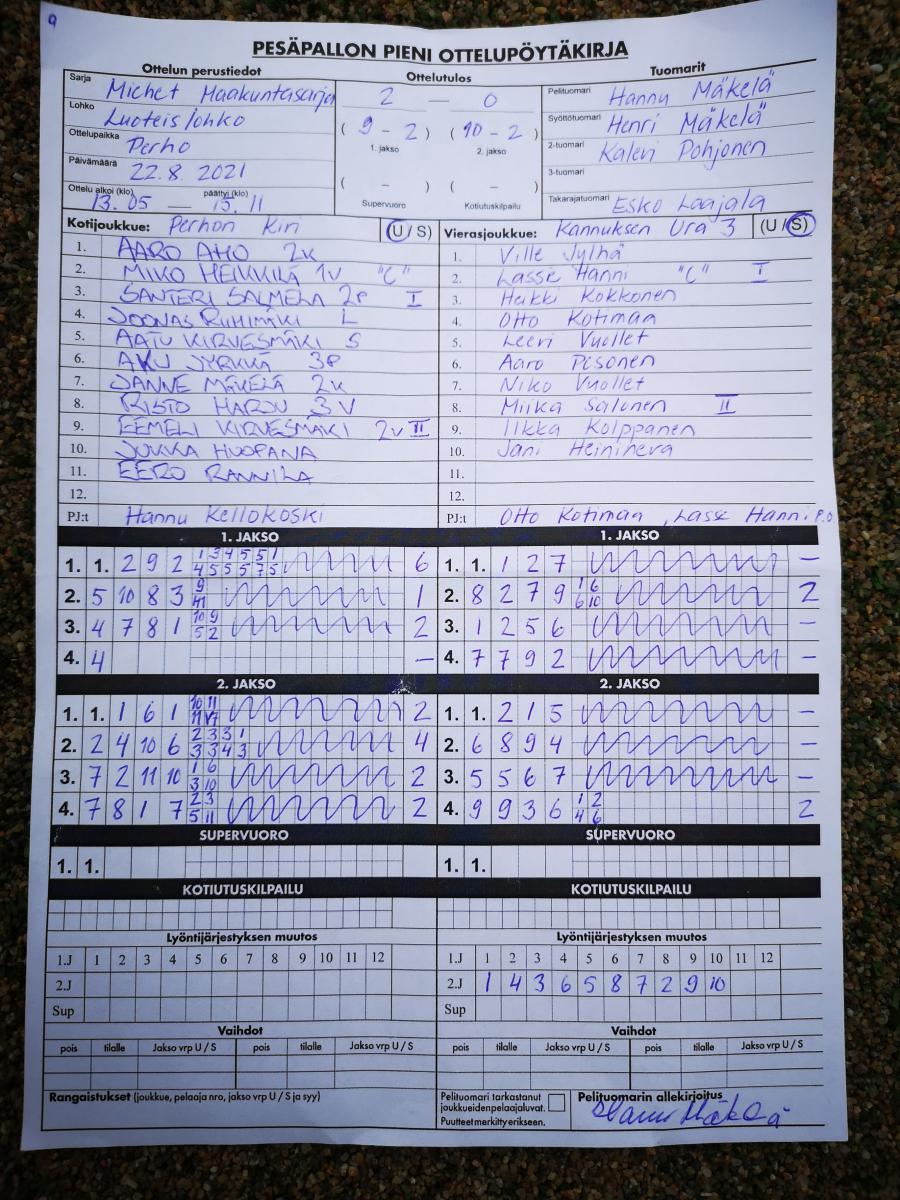 9
PESÄPALLON PIENI OTTELUPÖYTÄKIRJA
Ottelun perustiedot
Sarja Miehet Maakuntasarja
Lohko Luoteislohko
Ottelupaikka Perho
Päivämäärä 22.8. 2021
Ottelu alkoi (klo) 13.05 — päättyi (klo) 15.11
Ottelutulos
2 — 0
( 9 - 2 ) ( 10 - 2 )
1. jakso 2. jakso
( - ) ( - )
Supervuoro Kotiutuskilpailu
Tuomarit
Pelituomari Hannu Mäkelä
Syöttötuomari Henri Mäkelä
2-tuomari Kalevi Pohjonen
3-tuomari
Takarajatuomari Esko Laajala
Kotijoukkue: Perhon Kiri (U / S)
1. AARO AHO 2K
2. MIKO HEIKKILÄ 1V "C"
3. SANTERI SALMELA 2P I
4. JOONAS RIIHIMÄKI L
5. AATU KIRVESMÄKI S
6. AKU JYRKKÄ 3P
7. JANNE MÄKELÄ 2K
8. RISTO HARJU 3V
9. EEMELI KIRVESMÄKI 2V II
10. JUKKA HUOPANA
11. EERO RANNILA
12.
PJ:t Hannu Kellokoski
Vierasjoukkue: Kannuksen Ura 3 (U / S)
1. Ville Jylhä
2. Lasse Hanni "C" I
3. Heikki Kokkonen
4. Otto Kotiman
5. Leevi Vuollet
6. Aaro Pesonen
7. Niko Vuollet
8. Miika Salonen II
9. Ilkka Kolppanen
10. Jani Heinineva
11.
12.
PJ:t Otto Kotiman , Lasse Hanni P.O.
1. JAKSO
1. 1. 2 9 2 1 3 4 5 5 1 6
4 5 5 5 7 5
2. 5 10 8 3 9 1
11
3. 4 7 8 1 10 9 2
5 2
4. 4 —
1. JAKSO
1. 1. 1 2 7 —
2. 8 2 7 9 1 6 2
6 10
3. 1 2 5 6 —
4. 7 7 9 2 —
2. JAKSO
1. 1. 1 6 1 10 11 2
11 7
2. 2 4 10 6 2 3 3 1 4
3 3 4 3
3. 7 2 11 10 1 6 2
3 10
4. 7 8 1 7 2 3 2
5 11
2. JAKSO
1. 1. 2 1 5 —
2. 6 8 9 4 —
3. 5 5 6 7 —
4. 9 9 3 6 1 2 2
4 6
SUPERVUORO
1. 1.
SUPERVUORO
1. 1.
KOTIUTUSKILPAILU
KOTIUTUSKILPAILU
Lyöntijärjestyksen muutos
1.J 1 2 3 4 5 6 7 8 9 10 11 12
2.J
Sup
Lyöntijärjestyksen muutos
1.J 1 2 3 4 5 6 7 8 9 10 11 12
2.J 1 4 3 6 5 8 7 2 9 10
Sup
Vaihdot
pois tilalle Jakso vrp U / S pois tilalle Jakso vrp U / S
Vaihdot
pois tilalle Jakso vrp U / S pois tilalle Jakso vrp U / S
Rangaistukset (joukkue, pelaaja nro, jakso vrp U / S ja syy)
Pelituomari tarkastanut
joukkueiden pelaajaluvat.
Puutteet merkitty erikseen.
Pelituomarin allekirjoitus
Hannu Mäkelä